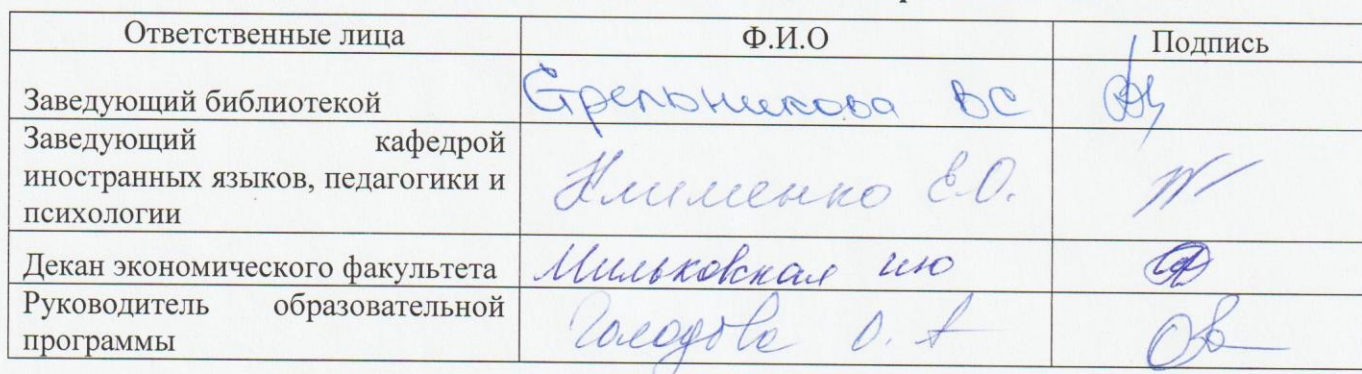 Ответственные лица Ф.И.О Подпись
Заведующий библиотекой Стрельникова ВС
Заведующий кафедрой
иностранных языков, педагогики и Клименко Е.О.
психологии
Декан экономического факультета Мильковская ию
Руководитель образовательной
программы Голодова О. А